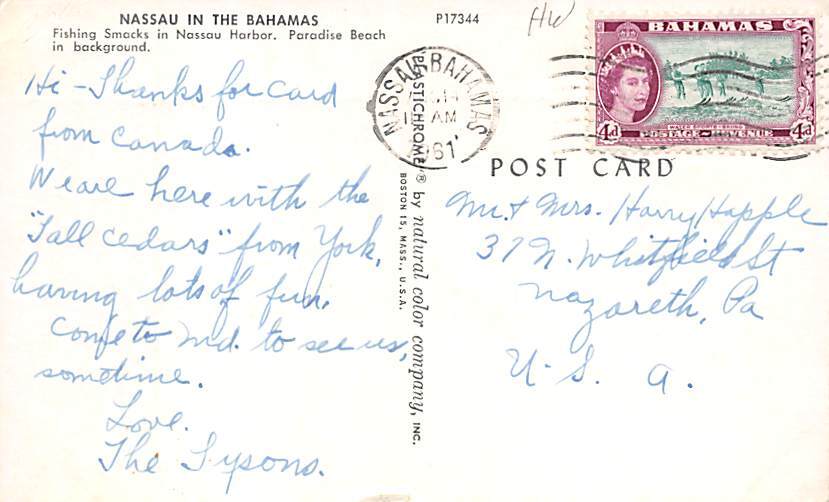 NASSAU IN THE BAHAMAS
Fishing Smacks in Nassau Harbor. Paradise Beach
in background.
P17344
HW
Hi - Thanks for card
from Canada.
We are here with the
"Tall cedars" from York,
having lots of fun.
Come to Md. to see us,
sometime.
Love.
The Tysons.
NASSAU BAHAMAS
AM
1961
PLASTICHROME ® by natural color company, INC.
BOSTON 15, MASS., U.S.A.
BAHAMAS
4d
4d
POSTAGE REVENUE
POST CARD
Mr. & Mrs. Harry Happle
37 N. Whitfield St
Nazareth, Pa
U. S. A.